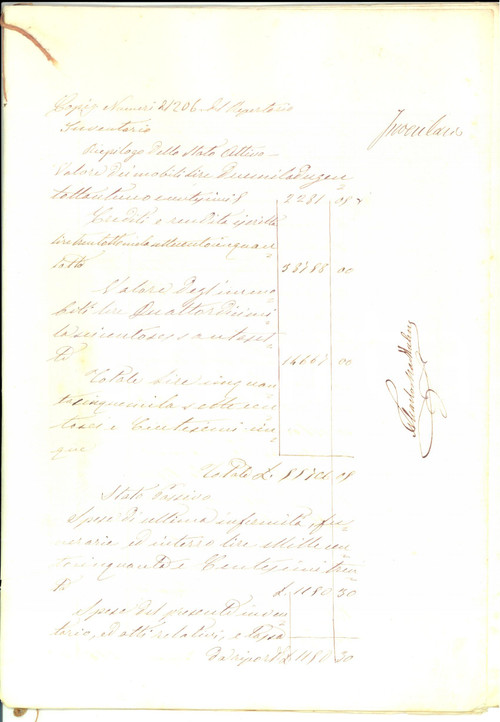 Copia Numeri 21206 del Repertorio
Inventario
Riepilogo dello Stato Attivo
Valore dei mobili lire Duemiladugen=
tottantuno e centesimi 8 2281 08
Crediti e rendita iscritta
lire trentottomilasettecentocinquan=
totto 38758 00
Valore degl'immo=
bili lire Quattordicimi=
laseicentosessantaset=
te 14667 00
Totale lire cinquan=
tacinquemilasettecen=
tosei e Centesimi
Totale L. 55706 08
Stato Passivo
Spese di ultima infermità fu=
nerarie ed interro lire Mille cen=
tocinquanta e Centesimi tren=
ta L. 1150 30
Spese del presente inven=
tario, ed atti relativi, e tassa
Da riport L. 1150 30